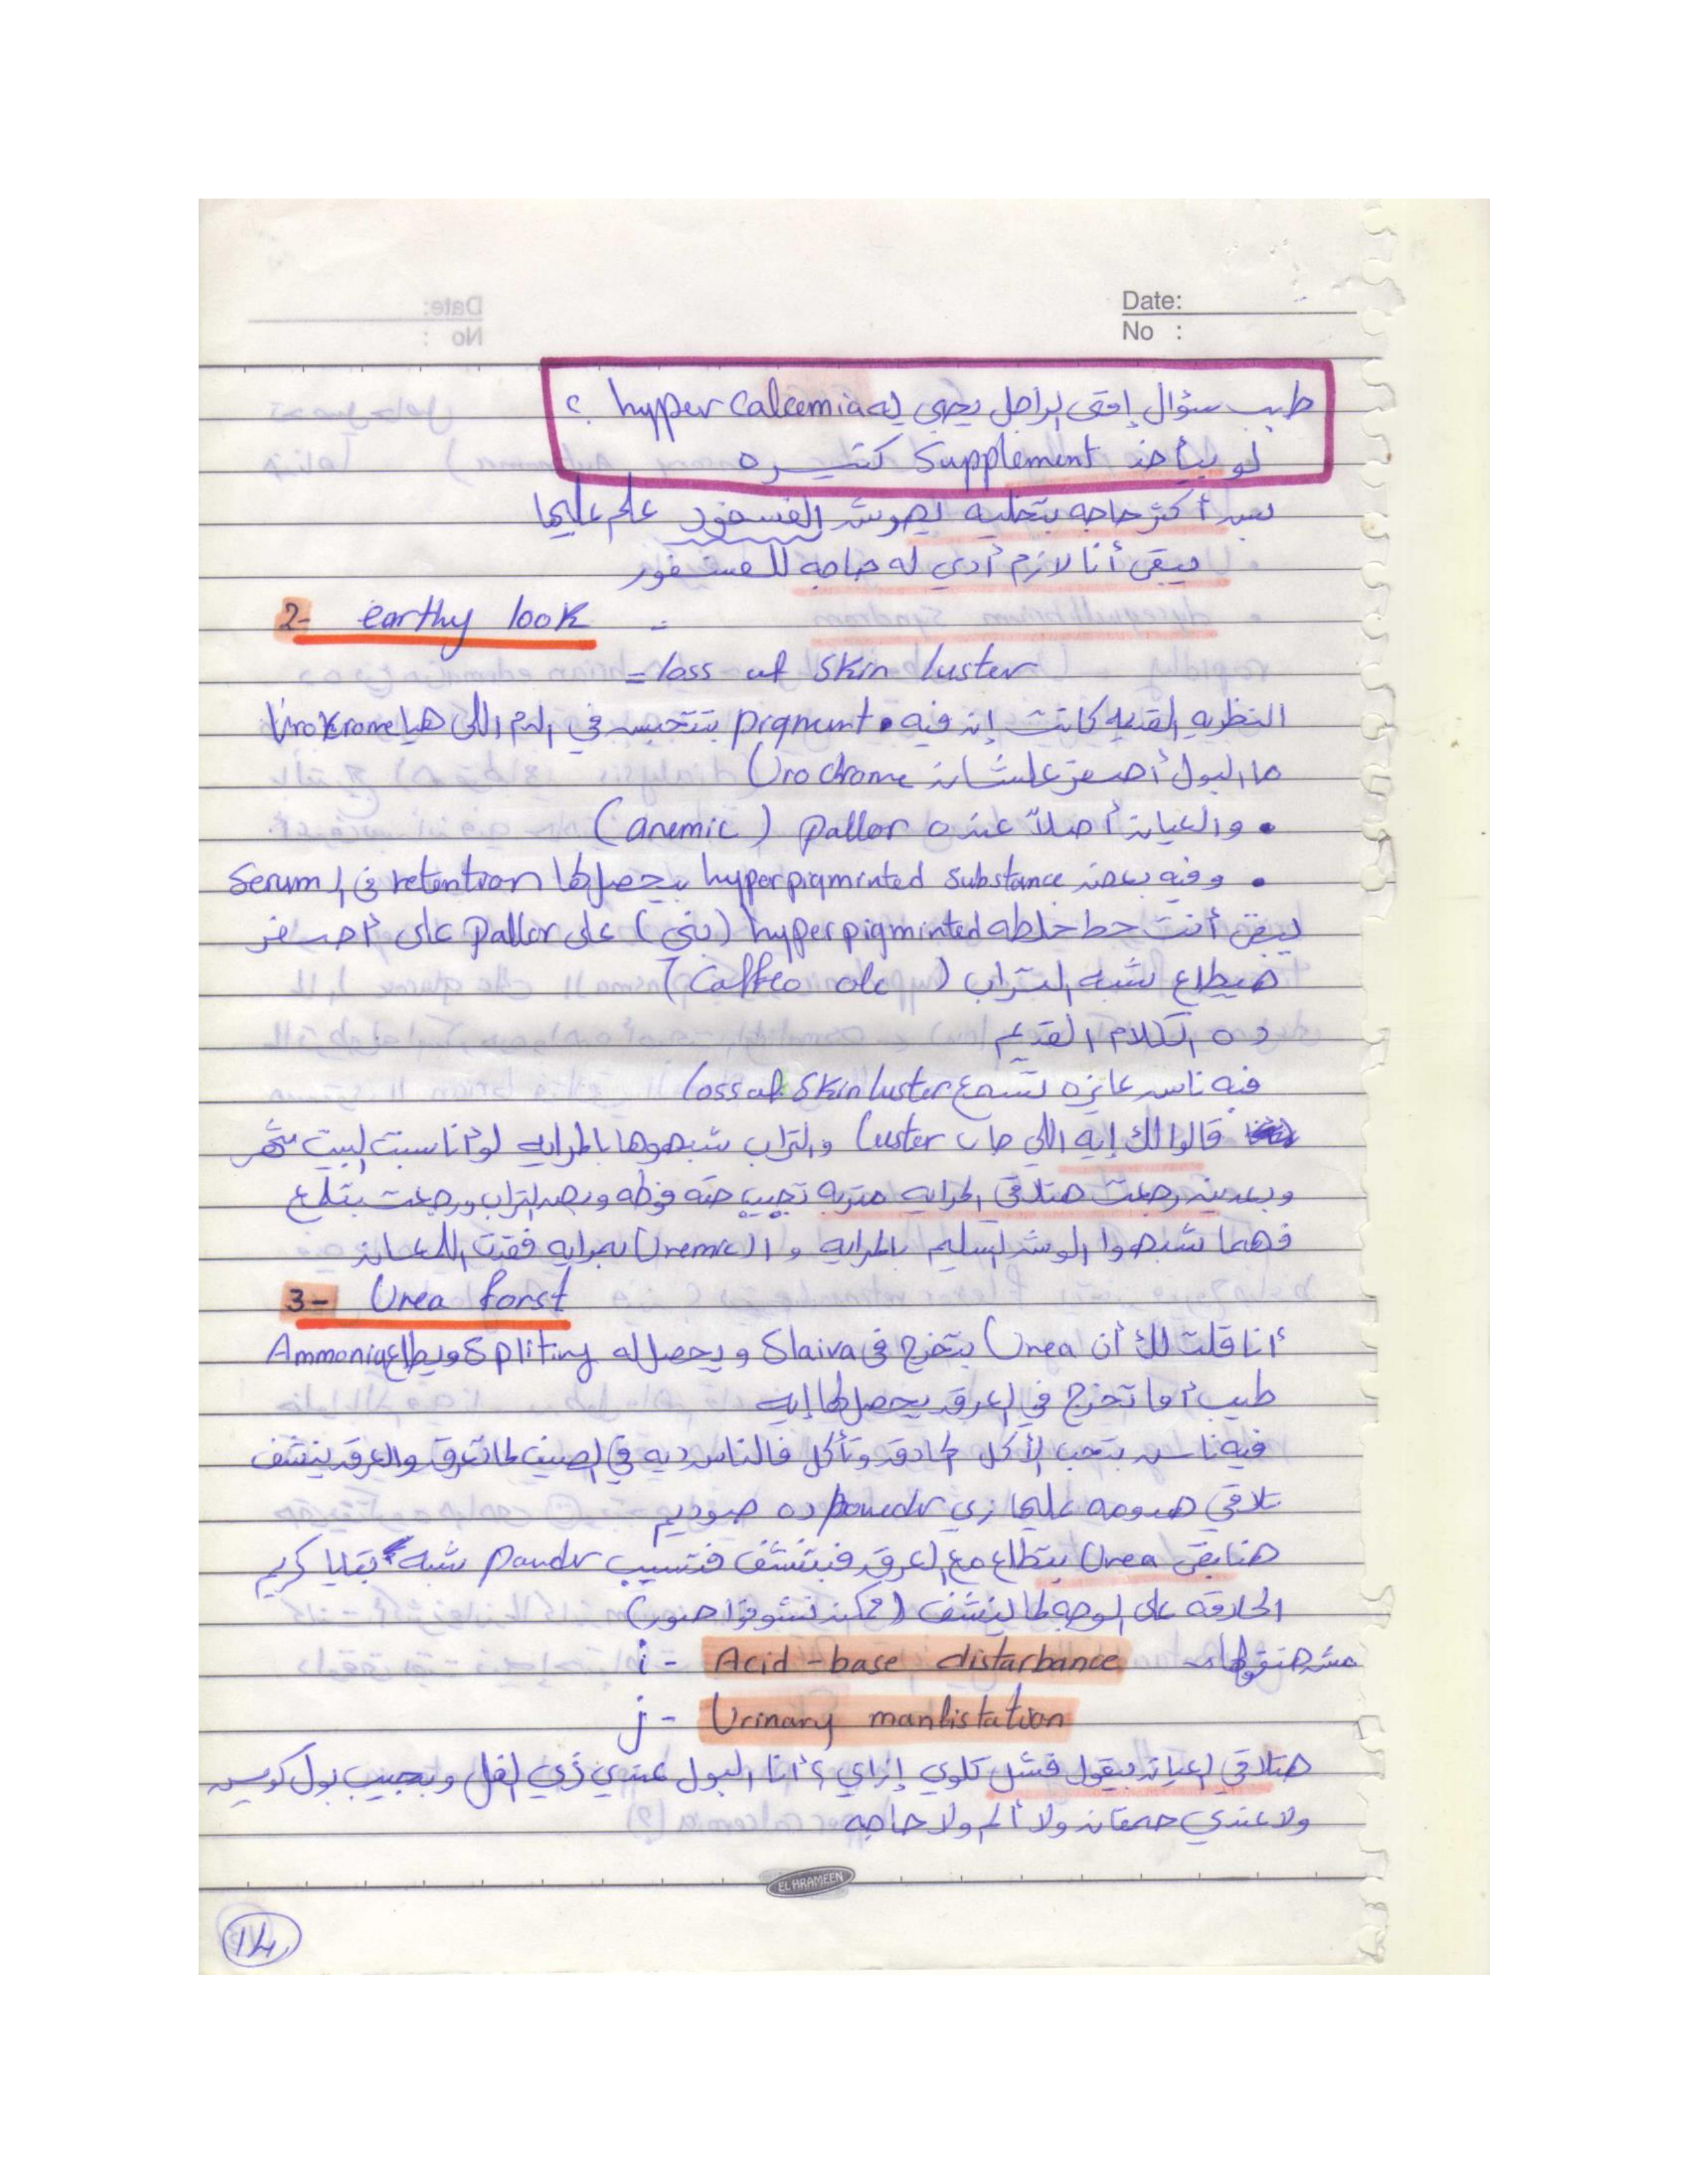 Date:
No :
طيب سؤال إمتى الراجل يجي له hypercalcemia ؟
لو بياخد Supplement كتيره
بس أكثر حاجه بتخليه يهرش الفسفور علم عليها
يبقى أنا لازم أدي له حاجه للفسفور
2- earthy look =
= loss of skin luster
النظريه القديمه كانت إن فيه pigment بتتحبس في الدم اللي هيا Urokrome
ما البول أصفر علشان Urochrome
• والعيان أصلاً عنده pallor (anemic)
• وفيه بعض hyperpigminted substance بيحصلها retention في ال Serum
يبقى أنت حط خلطه hyperpigminted (بني) على pallor على أصفر
هيطلع شبه التراب (Caffeo ole)
ده الكلام القديم
فيه ناس عايزه تسمع loss of skin luster
قالوا لك إيه اللي جاب luster والتراب شبهوها بالمرايه لو أنا سبت البيت شهر
وبعدين رجعت هتلاقي المرايه متربه تجيب حته فوطه وبصه التراب ورجعت بتلمع
فهما شبهوا الوش السليم بالمرايه و ال Uremic بمرايه فقدت اللمعان
3- Urea forst
أنا قلت لك أن Urea بتخرج في Slaiva ويحصل له Spliting ويطلع Ammonia
طيب أما تخرج في العرق يحصلها إيه
فيه ناس بتحب الأكل الحادق وتأكل فالناس ديه في الصيف لما تعرق والعرق ينشف
تلاقي هدومه عليها زي powedr ده صوديم
هنا بقى Urea بيتطلع مع العرق فبتنشف فتسيب pawdr شبه بقايا كريم
الحلاقه على الوجه لما ينشف (ممكن تشوفوا صور)
i - Acid-base distarbance مش هنقولها
j - Urinary manfistation
هتلاقي العيان بيقول فشل كلوي إزاي ؟ أنا البول عندي زي الفل وبجيب بول كويس
ولا عندي حرقان ولا ألم ولا حاجه
EL HRAMEEN
14